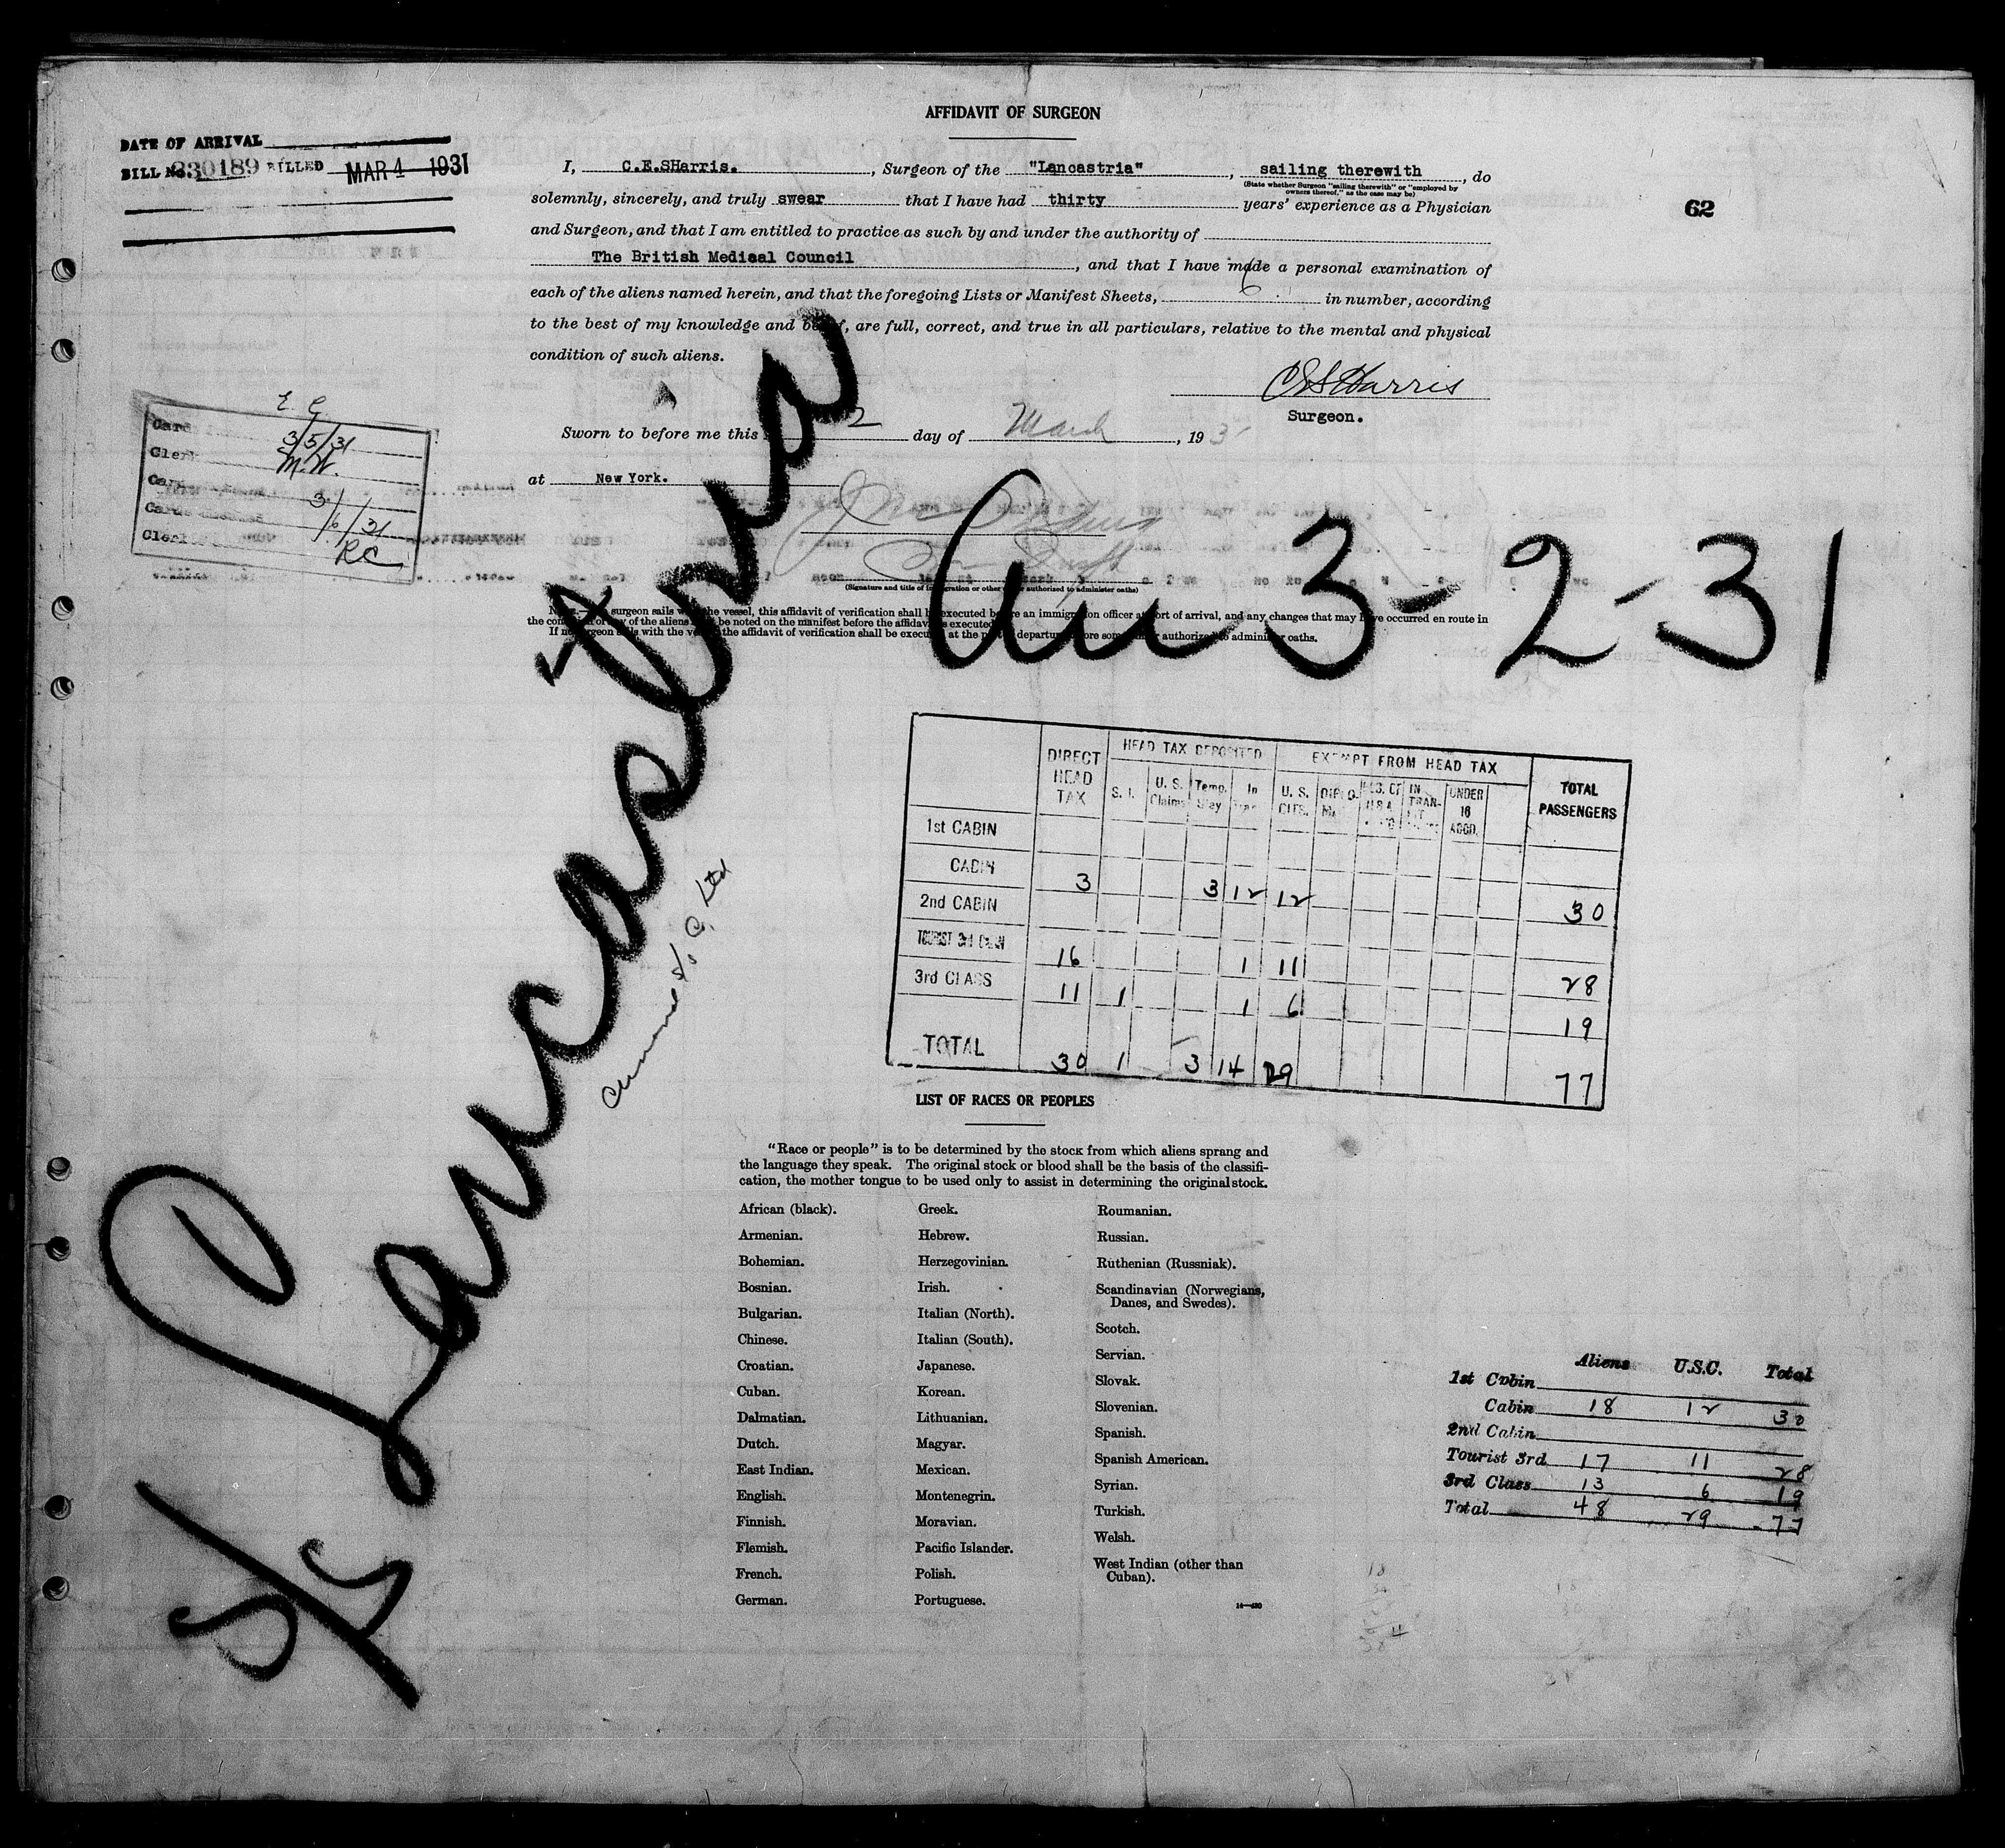 AFFIDAVIT OF SURGEON
DATE OF ARRIVAL
BILL No. 330189 BILLED MAR 4 1931
62
I, C.E.SHarris. , Surgeon of the "Lancastria" , sailing therewith , do
(State whether Surgeon "sailing therewith" or "employed by
owners thereof," as the case may be)
solemnly, sincerely, and truly swear that I have had thirty years' experience as a Physician
and Surgeon, and that I am entitled to practice as such by and under the authority of
The British Medical Council , and that I have made a personal examination of
each of the aliens named herein, and that the foregoing Lists or Manifest Sheets, 6 in number, according
to the best of my knowledge and belief, are full, correct, and true in all particulars, relative to the mental and physical
condition of such aliens.
CES Harris
Surgeon.
Sworn to before me this 2 day of March , 193
at New York.
(Signature and title of immigration or other officer authorized to administer oaths)
NOTE.—If surgeon sails with the vessel, this affidavit of verification shall be executed before an immigration officer at port of arrival, and any changes that may have occurred en route in
the condition of any of the aliens must be noted on the manifest before the affidavit is executed.
If no surgeon sails with the vessel the affidavit of verification shall be executed at the port of departure before some officer authorized to administer oaths.
E.G.
Card
3/5/31
Clerk M.W.
Card
3/6/31
Clerk RC
S/S Lancastria
Cunard S.S. Co. Ltd
Arr 3-2-31
DIRECT HEAD TAX HEAD TAX DEPOSITED EXEMPT FROM HEAD TAX TOTAL PASSENGERS
S. I. U. S. Claims Temp. Stay In Tran. U. S. CITS. DIPLO- MA RES. OF U.S.A. IN TRAN- SIT UNDER 16 ACCD.
1st CABIN
CABIN 3 3 12 12 30
2nd CABIN
TOURIST 3rd CABIN 16 1 11 28
3rd CLASS 11 1 1 6 19
TOTAL 30 1 3 14 29 77
LIST OF RACES OR PEOPLES
"Race or people" is to be determined by the stock from which aliens sprang and
the language they speak. The original stock or blood shall be the basis of the classifi-
cation, the mother tongue to be used only to assist in determining the original stock.
African (black).
Armenian.
Bohemian.
Bosnian.
Bulgarian.
Chinese.
Croatian.
Cuban.
Dalmatian.
Dutch.
East Indian.
English.
Finnish.
Flemish.
French.
German.
Greek.
Hebrew.
Herzegovinian.
Irish.
Italian (North).
Italian (South).
Japanese.
Korean.
Lithuanian.
Magyar.
Mexican.
Montenegrin.
Moravian.
Pacific Islander.
Polish.
Portuguese.
Roumanian.
Russian.
Ruthenian (Russniak).
Scandinavian (Norwegians,
Danes, and Swedes).
Scotch.
Servian.
Slovak.
Slovenian.
Spanish.
Spanish American.
Syrian.
Turkish.
Welsh.
West Indian (other than
Cuban).
14—430
Aliens U.S.C. Total
1st Cabin
Cabin 18 12 30
2nd Cabin
Tourist 3rd 17 11 28
3rd Class 13 6 19
Total 48 29 77